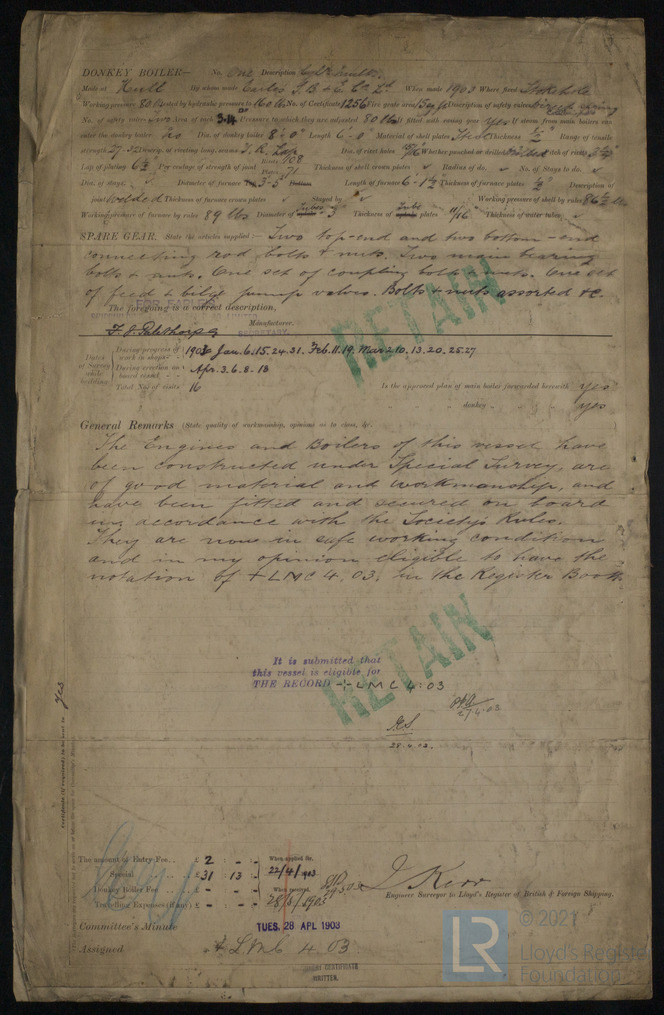 DONKEY BOILER— No. One Description Cyl. Multr.
Made at Hull By whom made Earles S. B. & E. Co. Ld. When made 1903 Where fixed Stokehold
Working pressure 80 lbs tested by hydraulic pressure to 160 lbs No. of Certificate 1256 Fire grate area Description of safety valves Direct spring
No. of safety valves two Area of each 3.14 Pressure to which they are adjusted 80 lbs If fitted with easing gear yes If steam from main boilers can
enter the donkey boiler No Dia. of donkey boiler 8'-0" Length 6'-0" Material of shell plates Steel Thickness 1/2" Range of tensile
strength 27-32 Descrip. of riveting long. seams T. R. Lap Dia. of rivet holes Whether punched or drilled Pitch of rivets
Lap of plating 6 1/2" Per centage of strength of joint Rivets 108 Plates 71 Thickness of shell crown plates ✓ Radius of do. ✓ No. of Stays to do. ✓
Dia. of stays. ✓ Diameter of furnace 3'-5" Length of furnace 6'-1 1/2" Thickness of furnace plates 1/2" Description of
joint Welded Thickness of furnace crown plates ✓ Stayed by ✓ Working pressure of shell by rules 86 1/2 lbs
Working pressure of furnace by rules 89 lbs Diameter of Tubes 3" Thickness of Tube plates 11/16 Thickness of water tubes ✓
SPARE GEAR. State the articles supplied:— Two top-end and two bottom-end
connecting rod bolts & nuts. Two main bearing
bolts & nuts. One set of coupling bolts & nuts. One set
of feed & bilge pump valves. Bolts & nuts assorted &c.
The foregoing is a correct description,
FOR EARLE'S
Manufacturer.
SECRETARY.
RETAIN
Dates of Survey while building
During progress of work in shops - - 1903 Jan. 6. 15. 24. 31. Feb. 11. 19. Mar 2. 10. 13. 20. 25. 27
During erection on board vessel - - Apr. 3. 6. 8. 18
Total No. of visits 16 Is the approved plan of main boiler forwarded herewith yes
" " donkey " " " yes
General Remarks (State quality of workmanship, opinions as to class, &c.
The Engines and Boilers of this vessel have
been constructed under Special Survey, are
of good material and workmanship, and
have been fitted and secured on board
in accordance with the Society's Rules.
They are now in safe working condition
and in my opinion eligible to have the
notation of + LMC 4. 03. in the Register Book.
RETAIN
It is submitted that
this vessel is eligible for
THE RECORD + LMC 4.03
27.4.03
28.4.03
Certificate (if required) to be sent to Yes
The amount of Entry Fee . . £ 2 : - : - When applied for,
Special . . £ 31 : 13 : - 22/4/1903
Donkey Boiler Fee . . £ - : - : - When received,
Travelling Expenses (if any) £ - : - : - 28/4/1903
J. Kerr
Engineer Surveyor to Lloyd's Register of British & Foreign Shipping.
Committee's Minute TUES. 28 APL 1903
Assigned + LMC 4.03
CERTIFICATE
WRITTEN.
LR © 2021
Lloyd's Register
Foundation